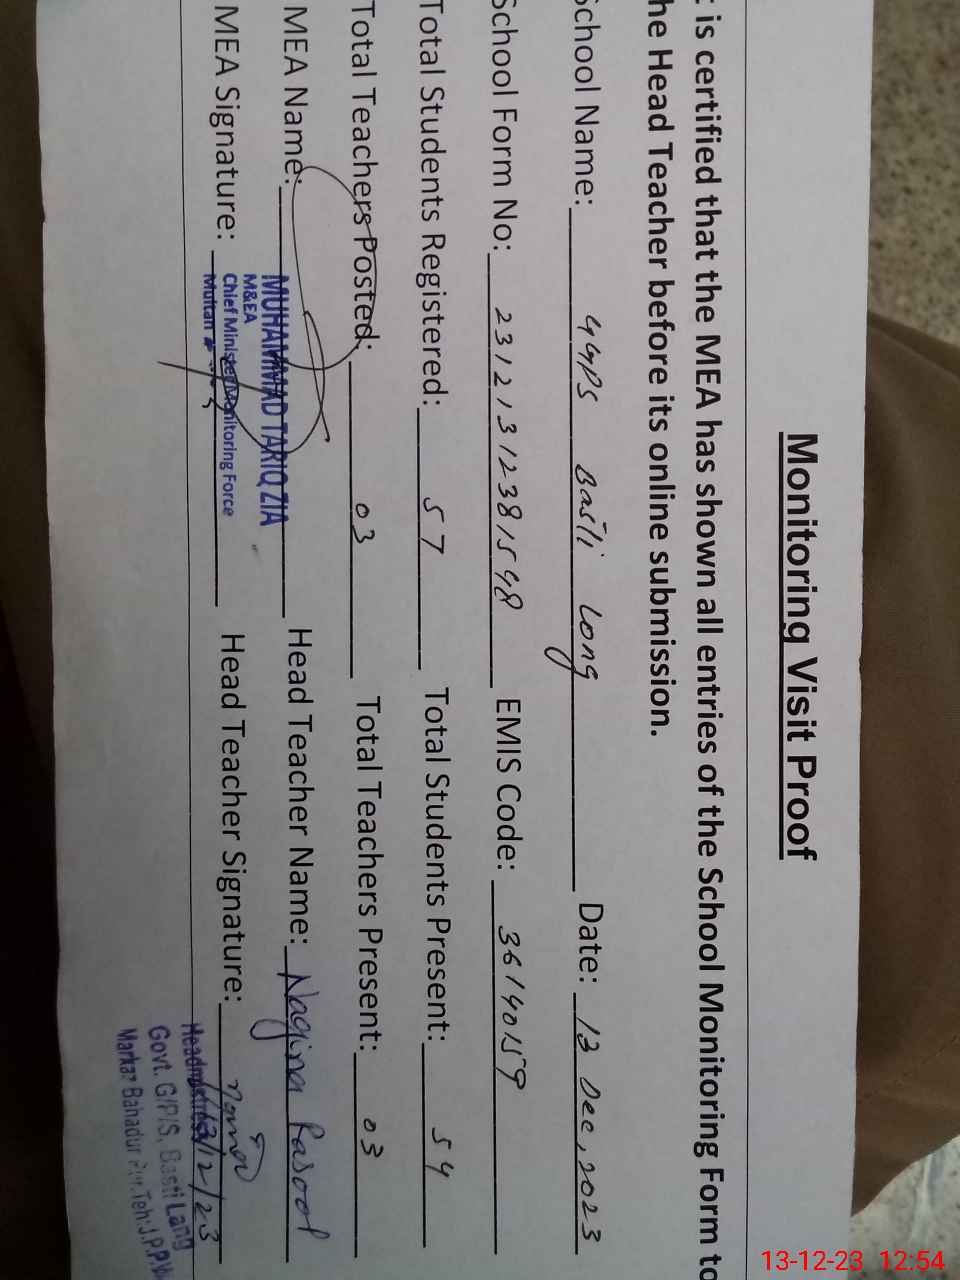 Monitoring Visit Proof
t is certified that the MEA has shown all entries of the School Monitoring Form to
he Head Teacher before its online submission.
School Name: GGPS Basti Long Date: 13 Dec, 2023
School Form No: 23121312381548 EMIS Code: 36140159
Total Students Registered: 57 Total Students Present: 54
Total Teachers Posted: 03 Total Teachers Present: 03
MEA Name: MUHAMMAD TARIQ ZIA Head Teacher Name: Nagina Rasool
M&EA
MEA Signature: Chief Minister Monitoring Force Head Teacher Signature:
Multan
Headmistress 13/12/23
Govt. G/P/S, Basti Lang
Markaz Bahadur Pur, Teh: J.P.P.W
13-12-23 12:54